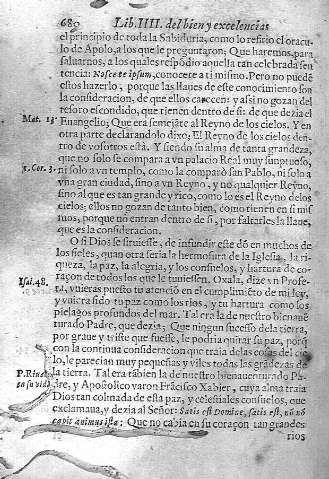 680 Lib. IIII. del bien y excelencias
el principio de toda la Sabiduria, como lo resitio el oracu-
lo de Apolo, a los que le preguntaron; Que haremos, para
saluarnos, a los quales respōdio aquella tan celebrada sen-
tencia Nosce te ipsum, conocete a ti mismo. Pero no puedē
estos hazerlo, porque las llaues de este conocimiento son
la consideracion, de que ellos carecen: y assi no gozan del
tesoro escondido, que tienen dentro de si: de que dezia el
Mat. 13 Euangelio; Que era semejāte al Reyno de los cielos. Y en
otra parte declarandolo dixo; El Reyno de los cielos den-
tro de vosotros está. Y siendo su alma de tanta grandeza,
que no solo se compara a vn palacio Real muy sunptuoso,
1. Cor. 3. ni solo a vn templo, como la comparò san Pablo, ni solo a
vna gran ciudad, sino a vn Reyno, y no qualquier Reyno,
sino al que es tan grande y rico, como lo es el Reyno delos
cielos; ellos no gozan de tanto bien, como tienen en si mis
mos, porque no entran dentro de si, por faltarles la llaue,
que es la consideracion.
O si Dios se siruiesse, de infundir este dō en muchos de
los fieles, quan otra seria la hermosura de la Iglesia, la ri-
queza, la paz, la alegria, y los consuelos, y hartura de co-
raçon de todos los que le tuuiessen. Oxala, dize vn Profe-
Isai. 48. ta, vuieras puesto tu atenciō en el cumplimiēto de mi ley,
y vuiera sido tu paz como los rios, y tu hartura como los
pielagos profundos del mar. Tal era la de nuestro bienauē
turado Padre, que dezia; Que ningun sucesso dela tierra,
por graue y triste que fuesse, le podria quitar su paz, porq̄
con la continua consideracion que traia delas cosas del cie
lo, le parecian muy pequeñas y viles todas las grandezas de
P. Riua la tierra. Tal era tābien la de nuestro bienauenturado Pa
su vida dre, y Apostolico varon Frācisco Xabier, cuya alma traia
Dios tan colmada de esta paz, y celestiales consuelos, que
exclamaua, y dezia al Señor: Satis est Domine, satis est, nō
capit animus ista; Que no cabia en su coraçon tan grandes
rios